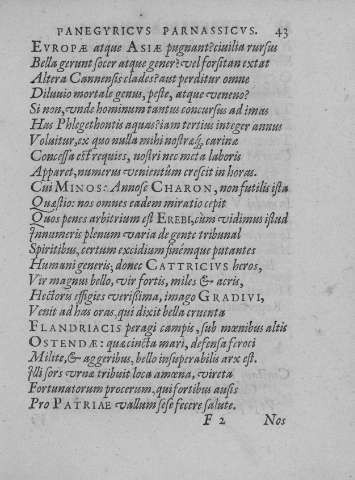 PANEGYRICVS PARNASSICVS. 43
EVROPÆ atque ASIÆ pugnant? civilia rursus
Bella gerunt socer atque gener? vel forsitan extat
Altera Cannensis clades? aut perditur omne
Diluvio mortale genus, peste, atque veneno?
Si non, vnde hominum tantus concursus ad imas
Has Phlegethontis aquas? iam tertius integer annus
Volvitur, ex quo nulla mihi nostræq; carinæ
Concessa est requies, nostri nec meta laboris
Apparet, numerus venientûm crescit in horas.
Cui MINOS: Annose CHARON, non futilis ista
Quæstio: nos omnes eadem miratio cepit
Quos penes arbitrium est EREBI, cùm vidimus istud
Innumeris plenum varia de gente tribunal
Spiritibus, certum excidium finémque putantes
Humani generis; donec CATTRICIVS heros,
Vir magnus bello, vir fortis, miles & acris,
Hectoris effigies verissima, imago GRADIVI,
Venit ad has oras, qui dixit bella cruenta
FLANDRIACIS peragi campis, sub mœnibus altis
OSTENDÆ: quæ cincta mari, defensa feroci
Milite, & aggeribus, bello insuperabilis arx est.
Illi sors vrnæ tribuit loca amœna, vireta
Fortunatorum procerum, qui fortibus ausis
Pro PATRIAE vallum sese fecere salute.
F 2 Nos